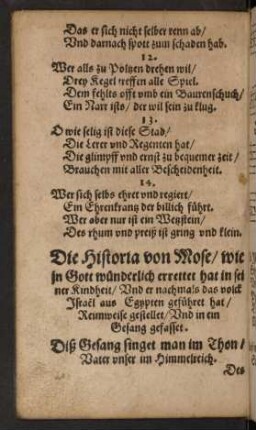 Das er sich nicht selber renn ab/
Und darnach spott zum schaden hab.
12.
Wer alls zu Poltzen drehen wil/
Drey Kegel treffen alle Spiel.
Dem fehlts offt umb ein Baurenschuch/
Ein Narr ists/ der wil sein zu klug.
13.
O wie selig ist diese Stad/
Die Lerer und Regenten hat/
Die glimpff und ernst zu bequemer zeit/
Brauchen mit aller Bescheidenheit.
14.
Wer sich selbs ehret und regiert/
Ein Ehrenkrantz der billich führt.
Wer aber nur ist ein Wetzstein/
Des rhum und preiß ist gring und klein.
Die Historia von Mose/ wie
jn Gott wünderlich errettet hat in sei
ner Kindheit/ Und er nachmals das volck
Israël aus Egypten geführet hat/
Reimweise gestellet/ Und in ein
Gesang gefasset.
Diß Gesang singet man im Thon/
Vater unser im Himmelreich.
Des